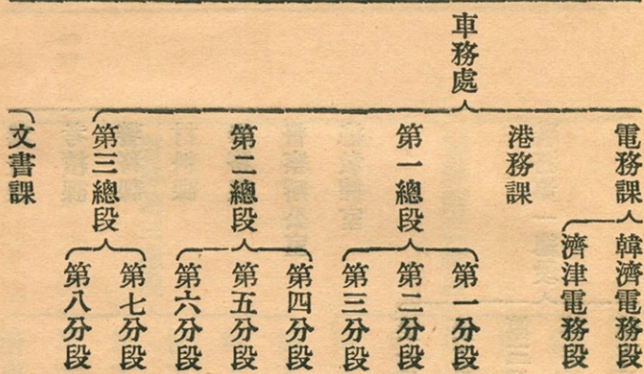 車務處
電務課
韓濟電務段
濟津電務段
港務課
第一總段
第一分段
第二分段
第三分段
第二總段
第四分段
第五分段
第六分段
第三總段
第七分段
第八分段
文書課